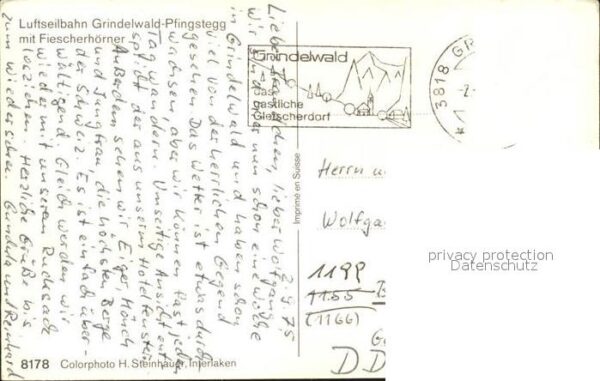 Luftseilbahn Grindelwald-Pfingstegg
mit Fiescherhörner
Grindelwald
das
gastliche
Gletscherdorf
3818 GR
2. 9. 75
lieber Wolfgang,
wir sind hier nun schon eine Woche
in Grindelwald und haben schon
viel von der herrlichen Gegend
gesehen. Das Wetter ist etwas durch-
wachsen, aber wir können fast jeden
Tag wandern. Umseitige Ansicht ent-
spricht der aus unserem Hotelfenster.
Außerdem sehen wir Eiger, Mönch
und Jungfrau, die höchsten Berge
der Schweiz. Es ist einfach über-
wältigend. Gleich werden wir
wieder mit unserem Rucksack
losziehen. Herzliche Grüße bis
zum Wiedersehen. Gundula und Reinhard
Imprimé en Suisse
Herrn u
Wolfga
1199
1155 B
(1166)
DD
privacy protection
Datenschutz
8178 Colorphoto H. Steinhauer, Interlaken